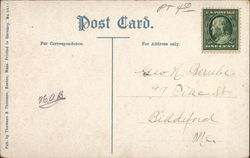 Pt 40
Post Card.
For Correspondence.
For Address only.
U.S. POSTAGE
ONE CENT
Geo H. Berube
97 Pike St
Biddeford
Me.
Pub. by Thomson & Thomson, Boston, Mass. Printed in Germany.